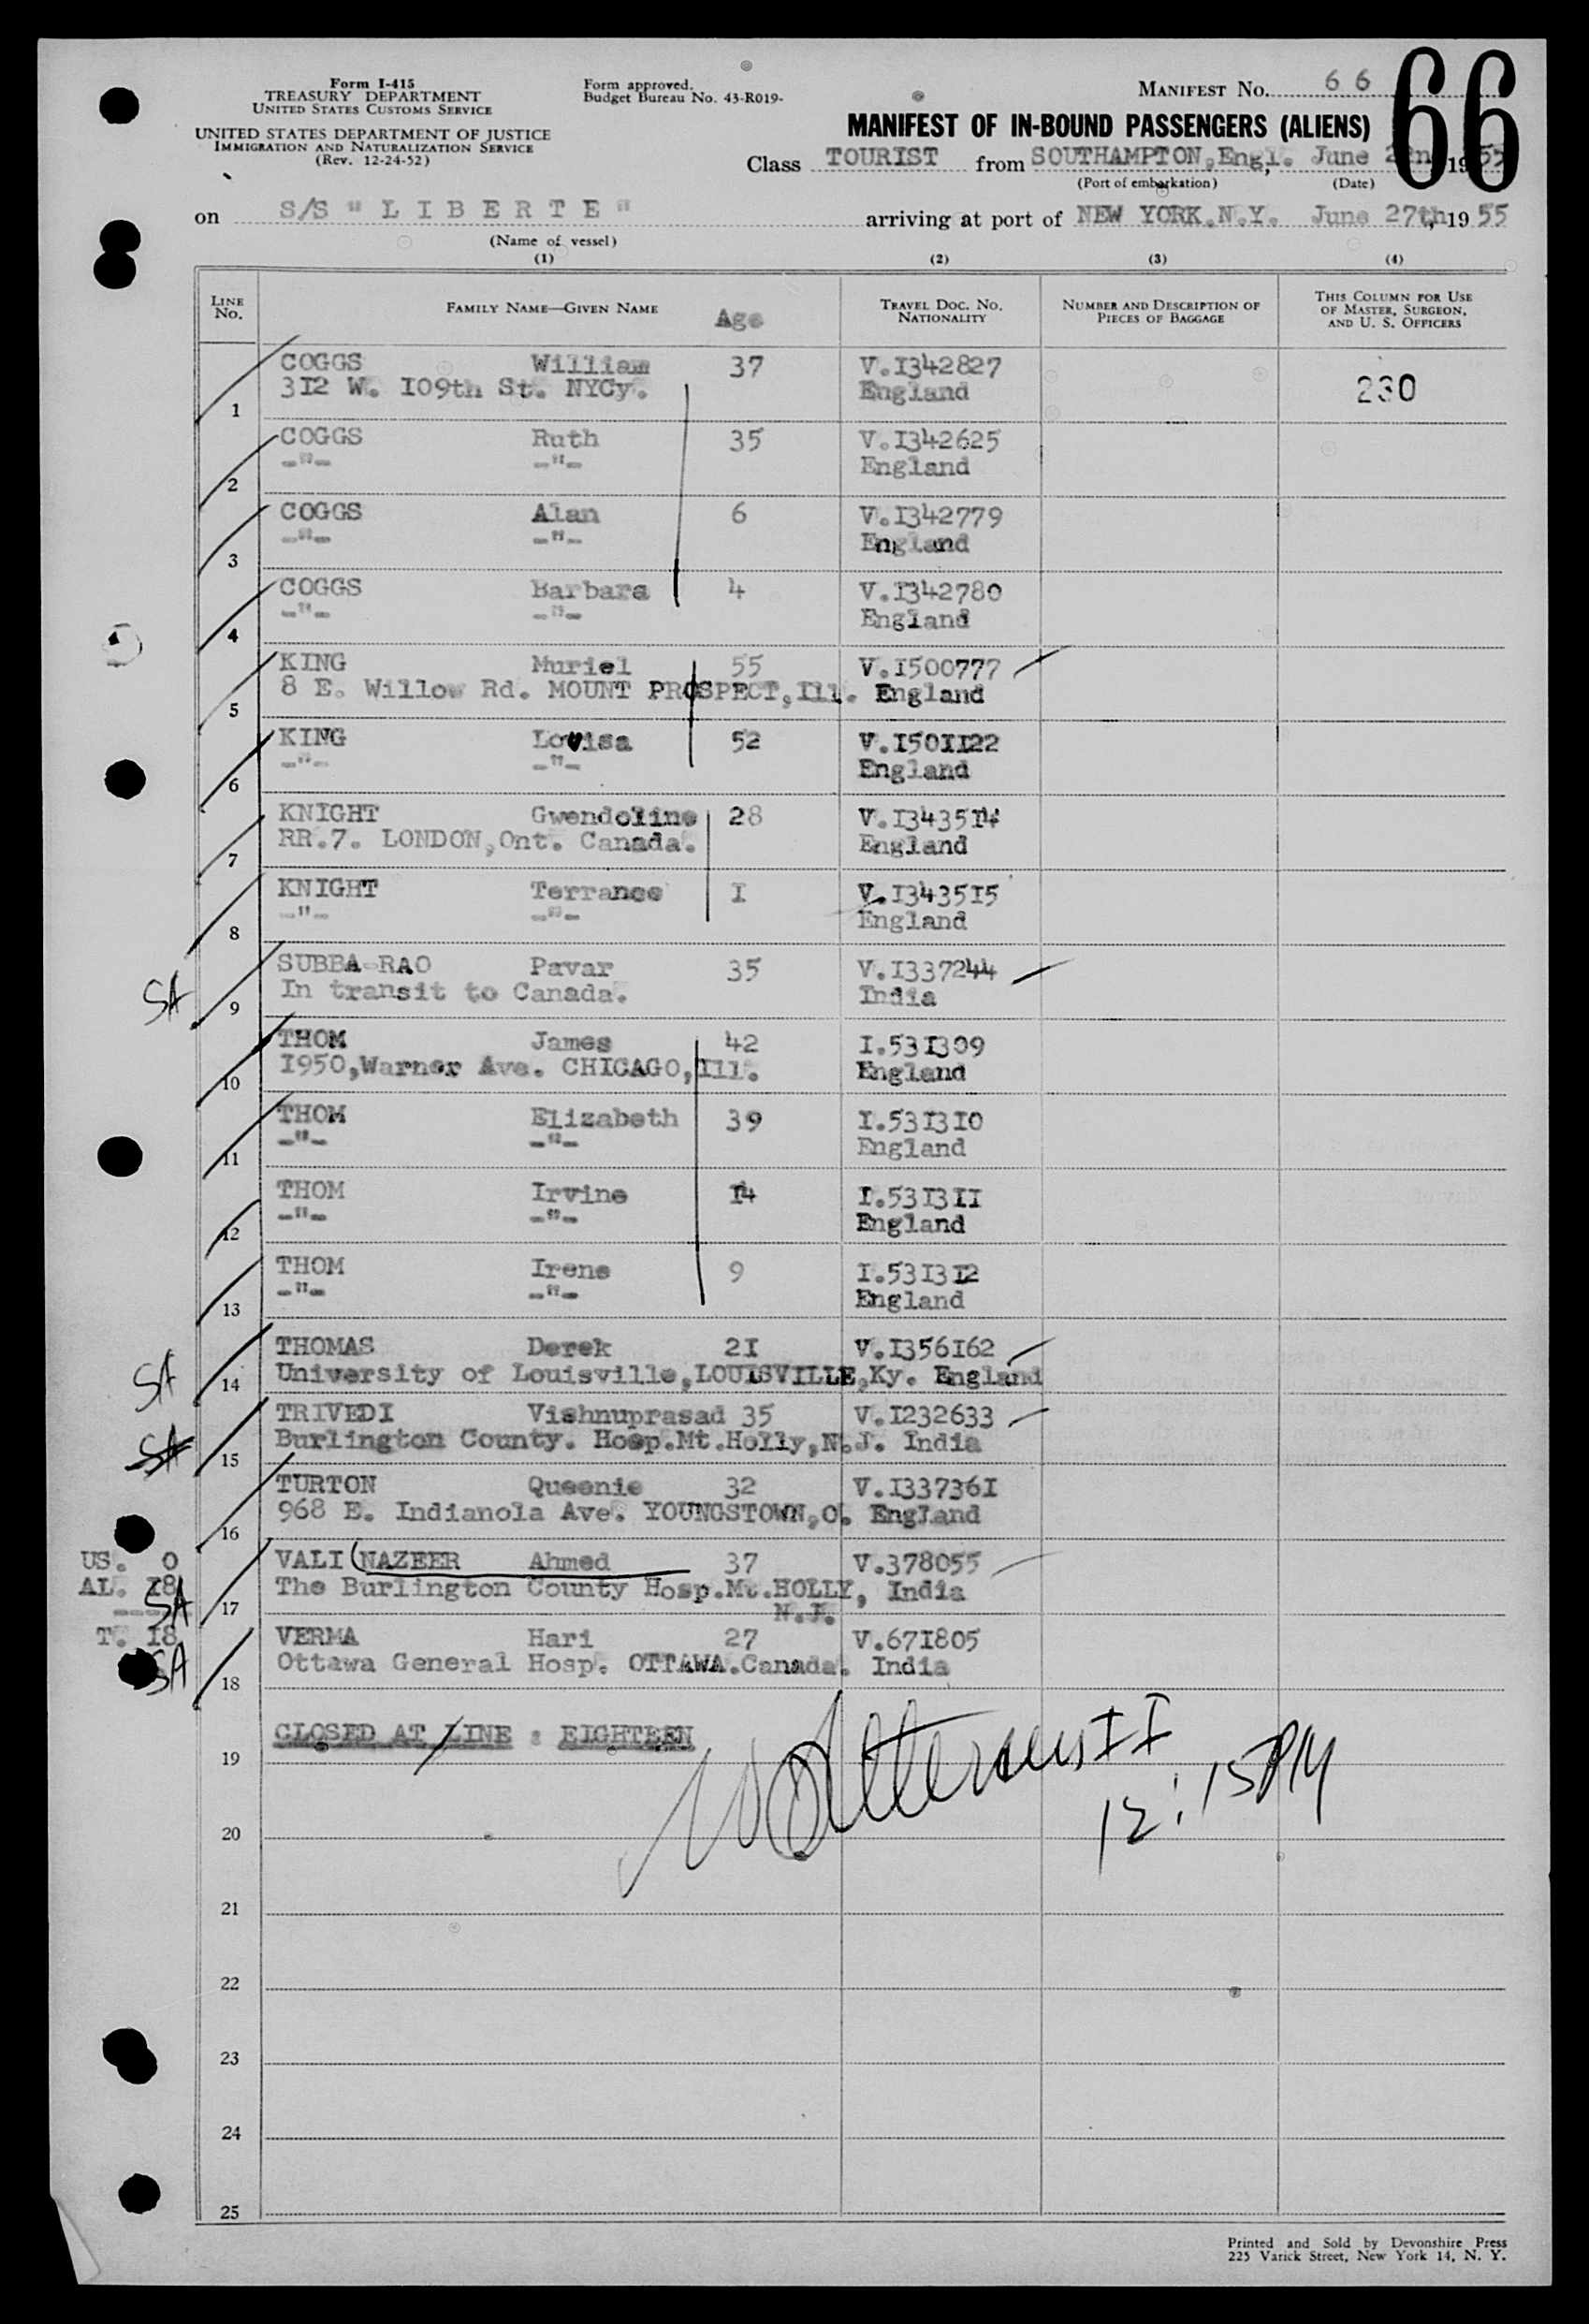 Form I-415
TREASURY DEPARTMENT
UNITED STATES CUSTOMS SERVICE
UNITED STATES DEPARTMENT OF JUSTICE
IMMIGRATION AND NATURALIZATION SERVICE
(Rev. 12-24-52)
Form approved.
Budget Bureau No. 43-R019-
MANIFEST No. 66
66
MANIFEST OF IN-BOUND PASSENGERS (ALIENS)
Class TOURIST from SOUTHAMPTON,Engl., June 22n 1955
(Port of embarkation) (Date)
on S/S " L I B E R T E " arriving at port of NEW YORK.N.Y. June 27th, 1955
(Name of vessel)
(1) (2) (3) (4)
LINE No. FAMILY NAME—GIVEN NAME Age TRAVEL DOC. NO. NATIONALITY NUMBER AND DESCRIPTION OF PIECES OF BAGGAGE THIS COLUMN FOR USE OF MASTER, SURGEON, AND U. S. OFFICERS
COGGS William 37 V.I342827
1 3I2 W. I09th St. NYCy. England 230
COGGS Ruth 35 V.I342625
2 -"- -"- England
COGGS Alan 6 V.I342779
3 -"- -"- England
COGGS Barbara 4 V.I342780
4 -"- -"- England
KING Muriel 55 V.I500777
5 8 E. Willow Rd. MOUNT PROSPECT,Ill. England
KING Louisa 52 V.I50II22
6 -"- -"- England
KNIGHT Gwendoline 28 V.I3435I4
7 RR.7. LONDON,Ont. Canada. England
KNIGHT Terrance I V.I3435I5
8 -"- -"- England
SUBBA-RAO Pavar 35 V.I337244
SA 9 In transit to Canada. India
THOM James 42 I.53I309
10 I950,Warner Ave. CHICAGO,Ill. England
THOM Elizabeth 39 I.53I3I0
11 -"- -"- England
THOM Irvine I4 I.53I3II
12 -"- -"- England
THOM Irene 9 I.53I3I2
13 -"- -"- England
THOMAS Derek 2I V.I356I62
SA 14 University of Louisville,LOUISVILLE,Ky. England
TRIVEDI Vishnuprasad 35 V.I232633
SA 15 Burlington County. Hosp.Mt.Holly,N.J. India
TURTON Queenie 32 V.I33736I
16 968 E. Indianola Ave. YOUNGSTOWN,O. England
US. 0 VALI (NAZEER Ahmed 37 V.378055
AL. I8 SA 17 The Burlington County Hosp.Mt.HOLLY, India
N.J.
T. I8 VERMA Hari 27 V.67I805
SA 18 Ottawa General Hosp. OTTAWA.Canada. India
19 CLOSED AT LINE : EIGHTEEN
12:15PM
20
21
22
23
24
25
Printed and Sold by Devonshire Press
225 Varick Street, New York 14, N. Y.